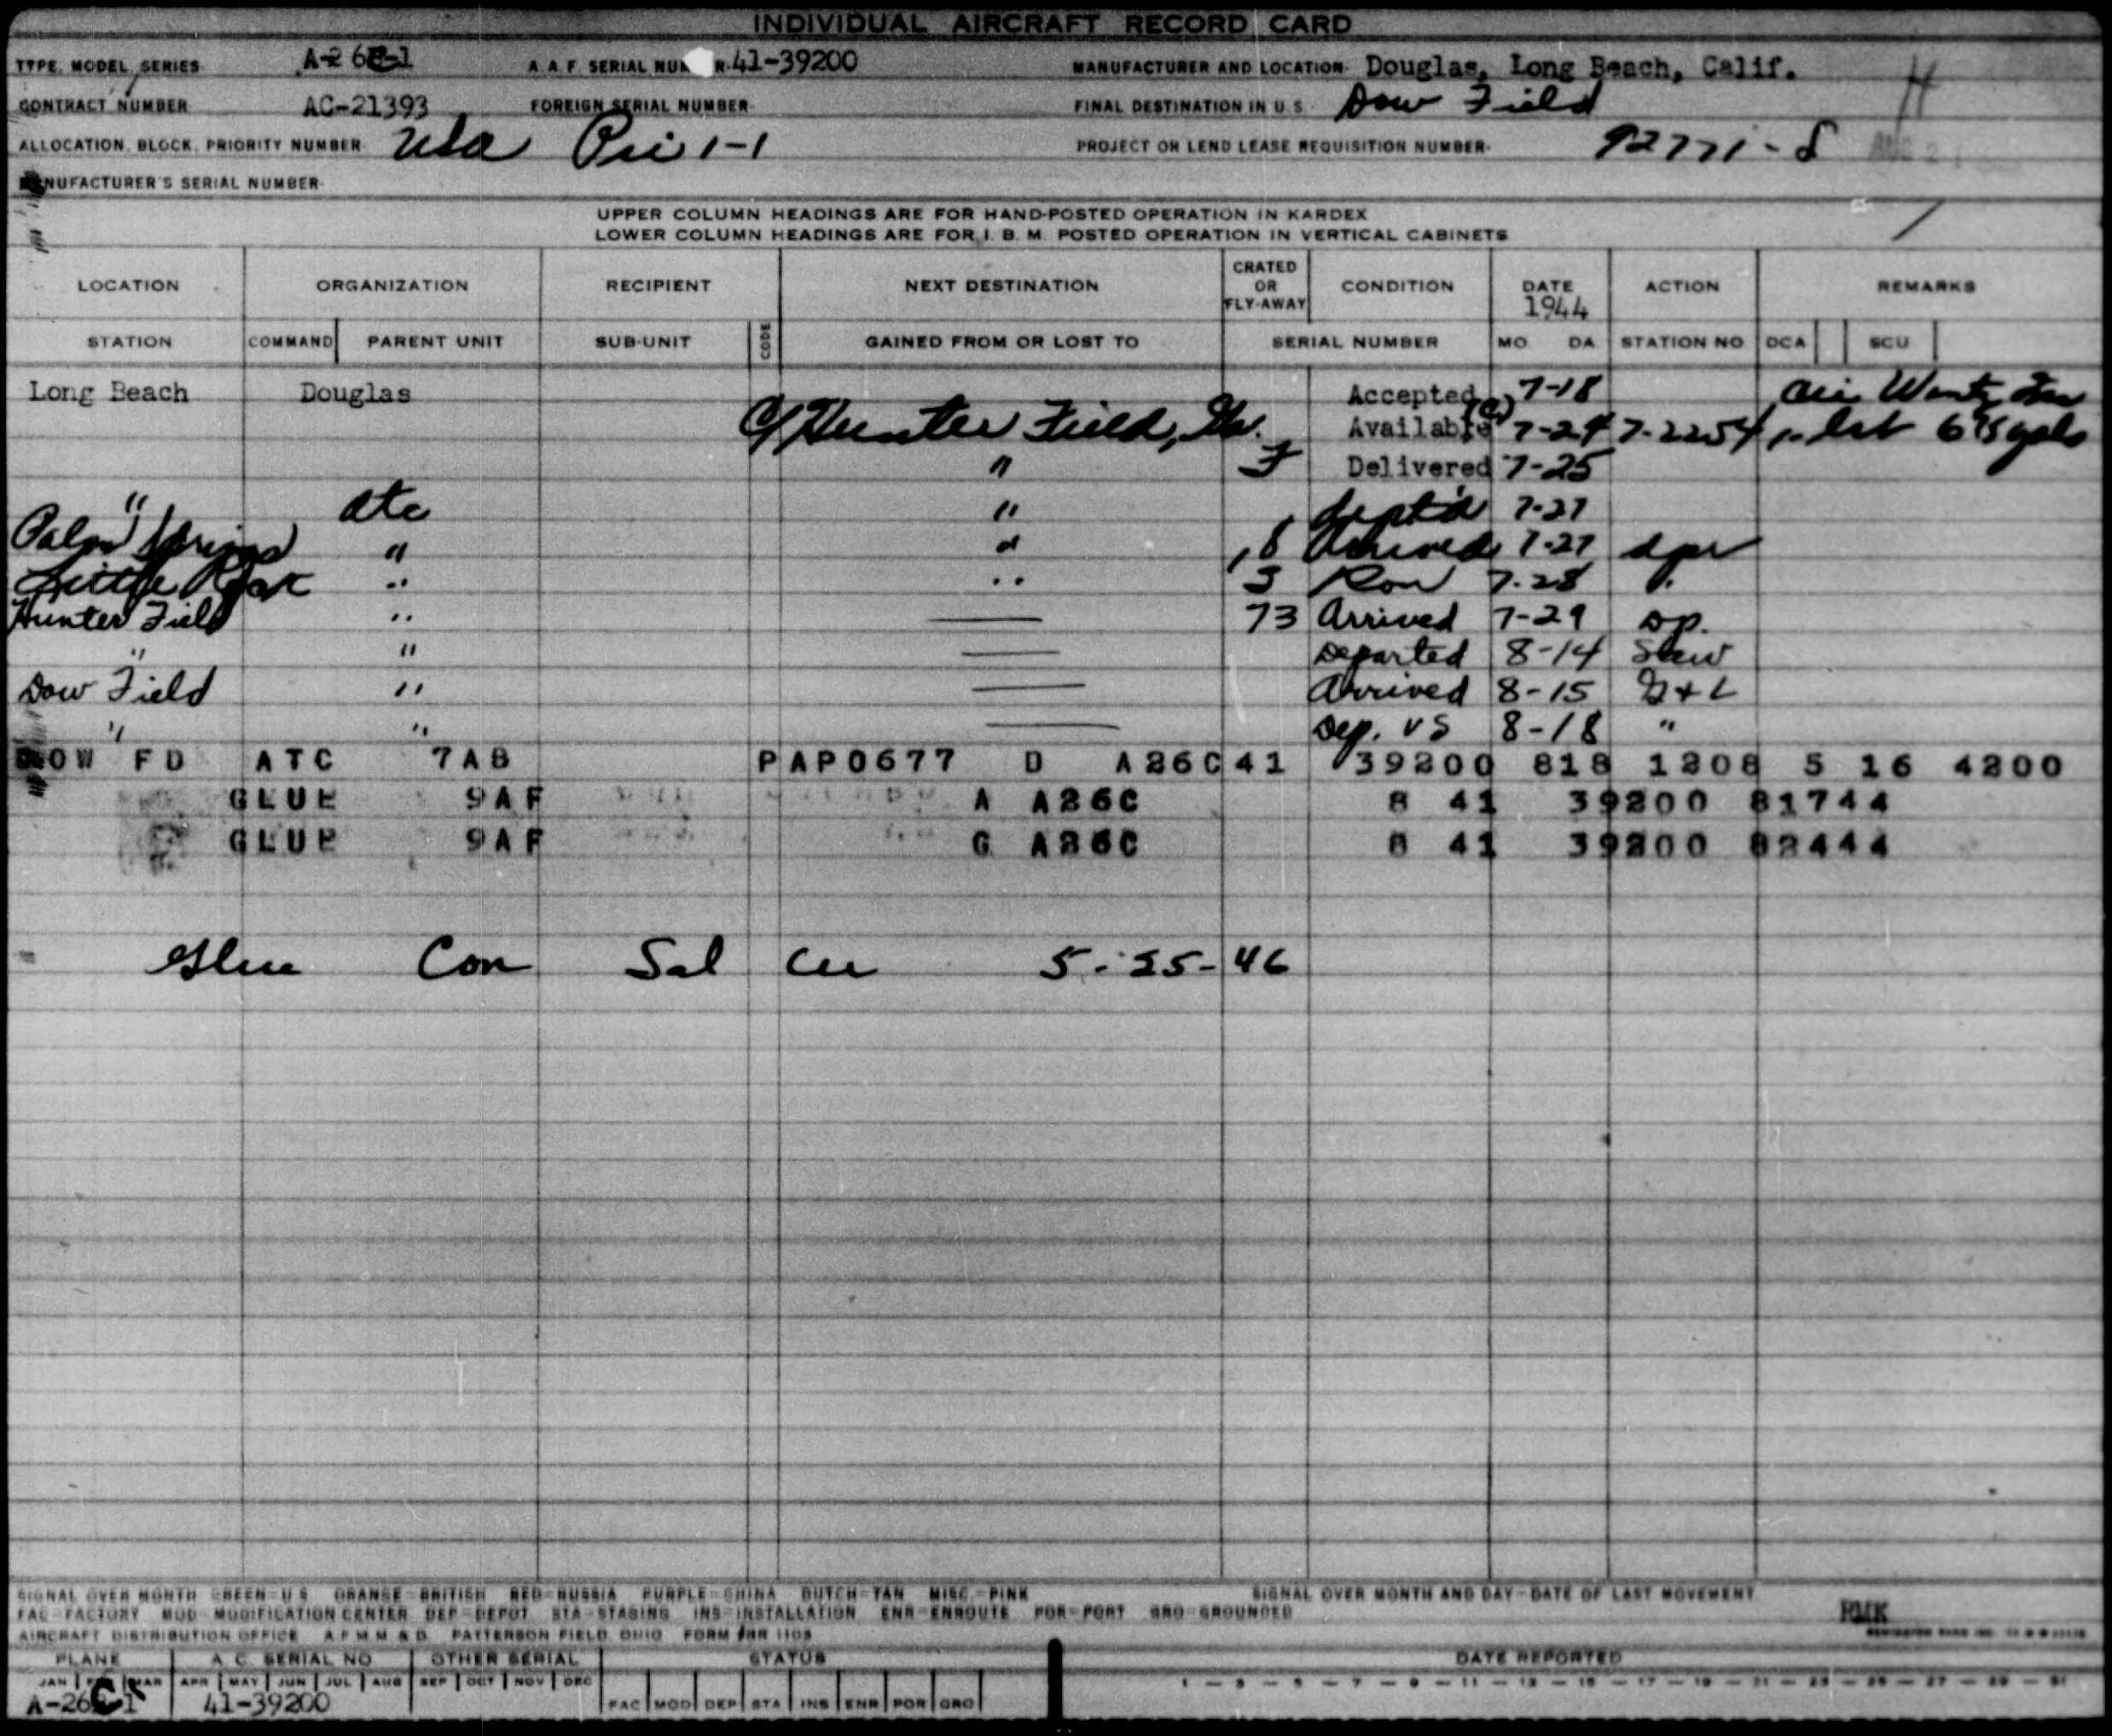 INDIVIDUAL AIRCRAFT RECORD CARD
TYPE, MODEL, SERIES A-26 -1 A. A. F. SERIAL NUM R. 41-39200 MANUFACTURER AND LOCATION Douglas, Long Beach, Calif. H
CONTRACT NUMBER AC-21393 FOREIGN SERIAL NUMBER FINAL DESTINATION IN U S Dow Field
ALLOCATION, BLOCK, PRIORITY NUMBER Usa Pri 1-1 PROJECT OR LEND LEASE REQUISITION NUMBER 92771-S
MANUFACTURER'S SERIAL NUMBER
UPPER COLUMN HEADINGS ARE FOR HAND-POSTED OPERATION IN KARDEX
LOWER COLUMN HEADINGS ARE FOR I. B. M. POSTED OPERATION IN VERTICAL CABINETS
LOCATION ORGANIZATION RECIPIENT NEXT DESTINATION CRATED OR FLY-AWAY CONDITION DATE 1944 ACTION REMARKS
STATION COMMAND PARENT UNIT SUB-UNIT CODE GAINED FROM OR LOST TO SERIAL NUMBER MO DA STATION NO DCA SCU
Long Beach Douglas Accepted 7-18
Hunter Field, Ga. Available 7-24
" F Delivered 7-25
" atc " 7-27
Palm Springs " " Arrived 7-27
Little Rock " " 3 Ron 7-28
Hunter Field " — 73 Arrived 7-29 Dp.
" " — Departed 8-14
Dow Field " — Arrived 8-15
" " — Dep. VS 8-18 "
DOW FD ATC 7AB PAP0677 D A26C41 39200 818 1208 5 16 4200
GLUE 9AF A A26C 8 41 39200 81744
GLUE 9AF G A26C 8 41 39200 82444
Glue Con Sal 5-25-46
SIGNAL OVER MONTH GREEN=U S ORANGE=BRITISH RED=RUSSIA PURPLE=CHINA DUTCH=TAN MISC=PINK SIGNAL OVER MONTH AND DAY=DATE OF LAST MOVEMENT
FAC=FACTORY MOD=MODIFICATION CENTER DEP=DEPOT STA=STAGING INS=INSTALLATION ENR=ENROUTE POR=PORT GRO=GROUNDED
AIRCRAFT DISTRIBUTION OFFICE PATTERSON FIELD OHIO FORM
PLANE A. C. SERIAL NO OTHER SERIAL STATUS DATE REPORTED
JAN MAR APR MAY JUN JUL AUG SEP OCT NOV DEC 1 - 3 - 5 - 7 - 9 - 11 - 13 - 15 - 17 - 19 - 21 - 23 - 25 - 27 - 29 - 31
A-26C-1 41-39200 FAC MOD DEP STA INS ENR POR GRO